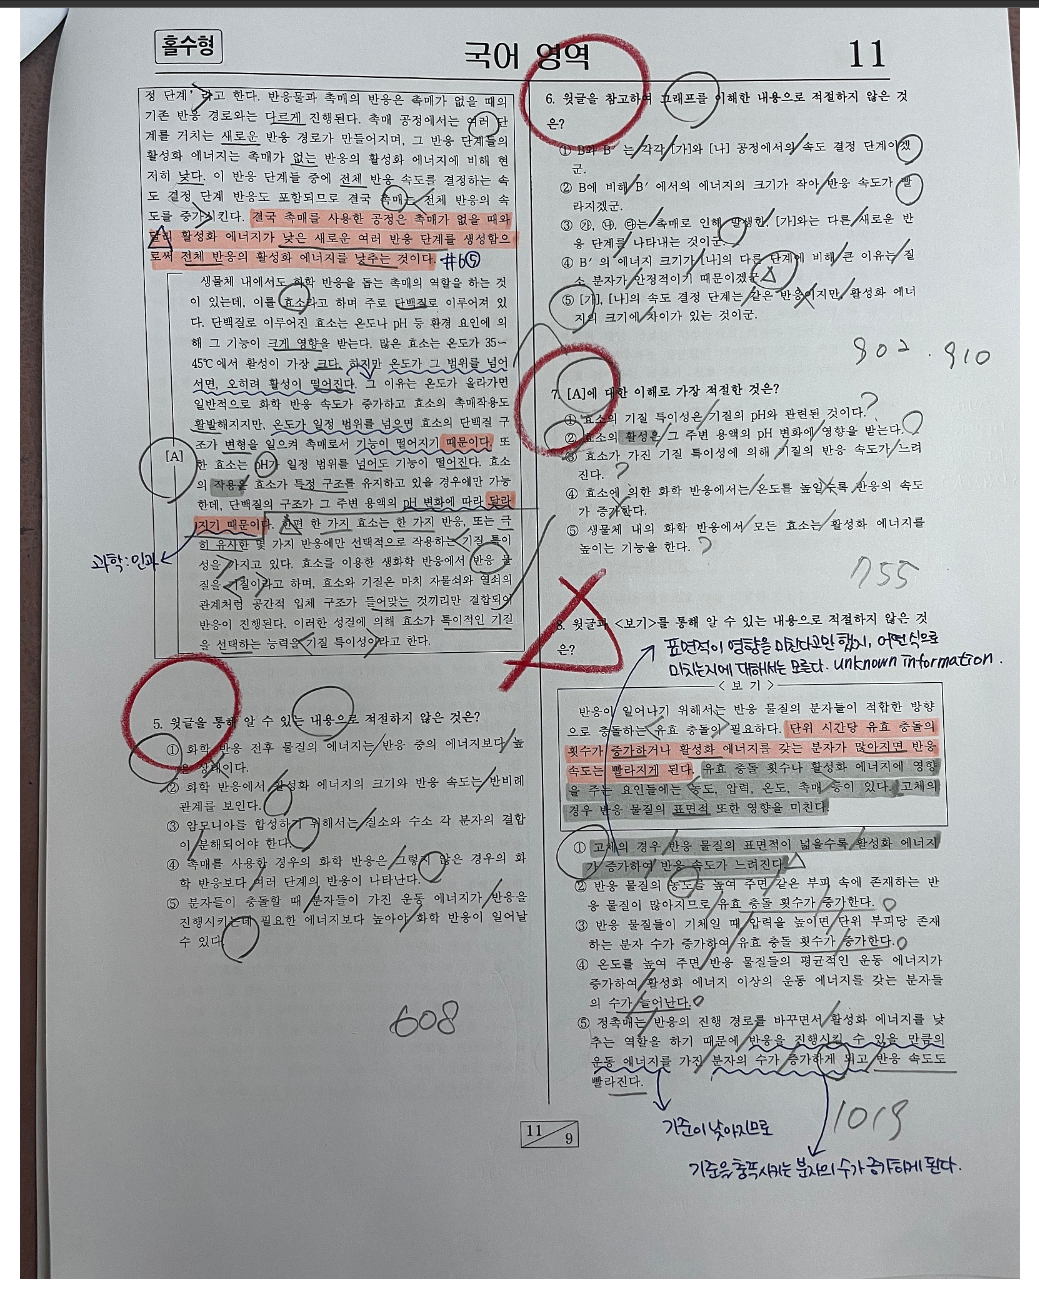 홀수형
국어 영역
11
정 단계’라고 한다. 반응물과 촉매의 반응은 촉매가 없을 때의
기존 반응 경로와는 다르게 진행된다. 촉매 공정에서는 여러 단
계를 거치는 새로운 반응 경로가 만들어지며, 그 반응 단계들의
활성화 에너지는 촉매가 없는 반응의 활성화 에너지에 비해 현
저히 낮다. 이 반응 단계들 중에 전체 반응 속도를 결정하는 속
도 결정 단계 반응도 포함되므로 결국 촉매는 전체 반응의 속
도를 증가시킨다. 결국 촉매를 사용한 공정은 촉매가 없을 때와
달리 활성화 에너지가 낮은 새로운 여러 반응 단계를 생성함으
로써 전체 반응의 활성화 에너지를 낮추는 것이다. #6⑤
생물체 내에서도 화학 반응을 돕는 촉매의 역할을 하는 것
이 있는데, 이를 효소라고 하며 주로 단백질로 이루어져 있
다. 단백질로 이루어진 효소는 온도나 pH 등 환경 요인에 의
해 그 기능이 크게 영향을 받는다. 많은 효소는 온도가 35~
45℃에서 활성이 가장 크다. 하지만 온도가 그 범위를 넘어
서면, 오히려 활성이 떨어진다. 그 이유는 온도가 올라가면
일반적으로 화학 반응 속도가 증가하고 효소의 촉매작용도
활발해지지만, 온도가 일정 범위를 넘으면 효소의 단백질 구
조가 변형을 일으켜 촉매로서 기능이 떨어지기 때문이다. 또
[A]
한 효소는 pH가 일정 범위를 넘어도 기능이 떨어진다. 효소
의 작용은 효소가 특정 구조를 유지하고 있을 경우에만 가능
한데, 단백질의 구조가 그 주변 용액의 pH 변화에 따라 달라
지기 때문이다. 한편 한 가지 효소는 한 가지 반응, 또는 극
히 유사한 몇 가지 반응에만 선택적으로 작용하는 기질 특이
과학:인과
성을 가지고 있다. 효소를 이용한 생화학 반응에서 반응 물
질을 기질이라고 하며, 효소와 기질은 마치 자물쇠와 열쇠의
관계처럼 공간적 입체 구조가 들어맞는 것끼리만 결합되어
반응이 진행된다. 이러한 성질에 의해 효소가 특이적인 기질
을 선택하는 능력을 기질 특이성이라고 한다.
5. 윗글을 통해 알 수 있는 내용으로 적절하지 않은 것은?
① 화학 반응 전후 물질의 에너지는 반응 중의 에너지보다 높
은 상태이다.
② 화학 반응에서 활성화 에너지의 크기와 반응 속도는 반비례
관계를 보인다.
③ 암모니아를 합성하기 위해서는 질소와 수소 각 분자의 결합
이 분해되어야 한다.
④ 촉매를 사용한 경우의 화학 반응은 그렇지 않은 경우의 화
학 반응보다 여러 단계의 반응이 나타난다.
⑤ 분자들이 충돌할 때 분자들이 가진 운동 에너지가 반응을
진행시키는데 필요한 에너지보다 높아야 화학 반응이 일어날
수 있다.
608
6. 윗글을 참고하여 그래프를 이해한 내용으로 적절하지 않은 것
은?
① B와 B′는 각각 [가]와 [나] 공정에서의 속도 결정 단계이겠
군.
② B에 비해 B′에서의 에너지의 크기가 작아 반응 속도가 빨
라지겠군.
③ ㉮, ㉯, ㉰는 촉매로 인해 발생한, [가]와는 다른 새로운 반
응 단계를 나타내는 것이군.
④ B′의 에너지 크기가 [나]의 다른 단계에 비해 큰 이유는 질
소 분자가 안정적이기 때문이겠군.
⑤ [가], [나]의 속도 결정 단계는 같은 반응이지만, 활성화 에너
지의 크기에 차이가 있는 것이군.
902 . 910
7. [A]에 대한 이해로 가장 적절한 것은?
① 효소의 기질 특이성은 기질의 pH와 관련된 것이다. ?
② 효소의 활성은 그 주변 용액의 pH 변화에 영향을 받는다.
③ 효소가 가진 기질 특이성에 의해 기질의 반응 속도가 느려
진다. ?
④ 효소에 의한 화학 반응에서는 온도를 높일수록 반응의 속도
가 증가한다.
⑤ 생물체 내의 화학 반응에서 모든 효소는 활성화 에너지를
높이는 기능을 한다. ?
755
8. 윗글과 <보기>를 통해 알 수 있는 내용으로 적절하지 않은 것
은?
표면적이 영향을 미친다고만 했지, 어떤식으로
미치는지에 대해서는 모른다. unknown information.
< 보 기 >
반응이 일어나기 위해서는 반응 물질의 분자들이 적합한 방향
으로 충돌하는 유효 충돌이 필요하다. 단위 시간당 유효 충돌의
횟수가 증가하거나 활성화 에너지를 갖는 분자가 많아지면 반응
속도는 빨라지게 된다. 유효 충돌 횟수나 활성화 에너지에 영향
을 주는 요인들에는 농도, 압력, 온도, 촉매 등이 있다. 고체의
경우 반응 물질의 표면적 또한 영향을 미친다.
① 고체의 경우, 반응 물질의 표면적이 넓을수록 활성화 에너지
가 증가하여 반응 속도가 느려진다.
② 반응 물질의 농도를 높여 주면 같은 부피 속에 존재하는 반
응 물질이 많아지므로 유효 충돌 횟수가 증가한다.
③ 반응 물질들이 기체일 때 압력을 높이면 단위 부피당 존재
하는 분자 수가 증가하여 유효 충돌 횟수가 증가한다.
④ 온도를 높여 주면 반응 물질들의 평균적인 운동 에너지가
증가하여 활성화 에너지 이상의 운동 에너지를 갖는 분자들
의 수가 늘어난다.
⑤ 정촉매는 반응의 진행 경로를 바꾸면서 활성화 에너지를 낮
추는 역할을 하기 때문에 반응을 진행시킬 수 있을 만큼의
운동 에너지를 가진 분자의 수가 증가하게 되고 반응 속도도
빨라진다.
기준이 낮아지므로
1019
기준을 충족시키는 분자의 수가 증가하게 된다.
11
9